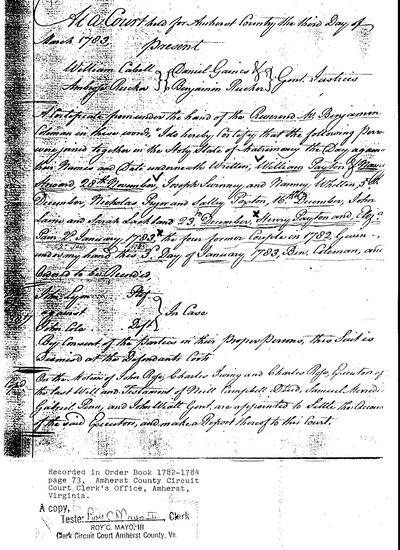 At a Court held for Amherst County the third Day of
March 1783
Present
William Cabell Daniel Gaines Gent. Justices
Ambrose Rucker Benjamin Rucker
A Certificate from under the hand of the Reverend Mr. Benjamin
Coleman in these words, I do hereby Certify that the following persons
were joined together in the Holy State of Matrimony the Day against
their Names and Date underneath Written, William Payton &
Howard 28th November, Joseph and Nanney Whitten 5th
December, Nicholas and Salley Payton, 16th December, John
and Sarah Lackland 23d December, Henry Payton and
2d January 1783 the four former Couples in 1782, Given
under my hand this 3d Day of January 1783, Ben. Coleman, and
Ordered to be Recorded
John Plt
against In Case
John Cole Deft
By Consent of the parties in their Proper persons, this Suit is
Dismised at the Defendants Costs
On the Motion of John Rose, Charles Irving and Charles Rose, Executors of
the Last Will and Testament of Neill Campbell Decd, Samuel
Gabriel Penn, and John Wiatt Gent. are appointed to Settle the Accounts
of the said Executors, and make a Report thereof to this Court.
Recorded in Order Book 1782-1784
page 73, Amherst County Circuit
Court Clerk's Office, Amherst,
Virginia.
A copy,
Teste: Roy C. Mayo III Clerk
ROY C. MAYO, III
Clerk Circuit Court Amherst County, Va.